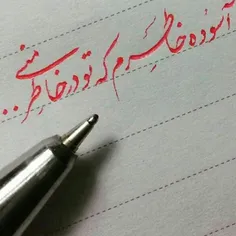 آسوده خاطرم که تو در خاطر منی..